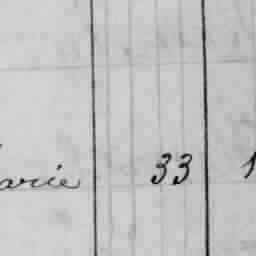 arie 33 1